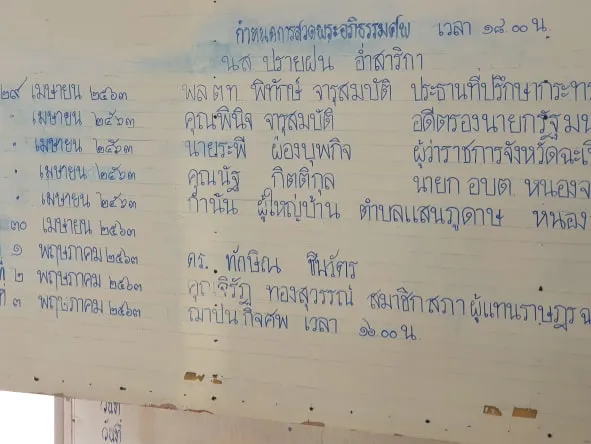 กำหนดการสวดพระอภิธรรมศพ เวลา ๑๘.๐๐ น.
นส ปรายฝน อ่ำสาริกา
๒๙ เมษายน ๒๕๖๓ พล ต.ท. พิทักษ์ จารุสมบัติ ประธานที่ปรึกษากระทร
" เมษายน ๒๕๖๓ คุณพินิจ จารุสมบัติ อดีตรองนายกรัฐมน
" เมษายน ๒๕๖๓ นายระพี ผ่องบุพกิจ ผู้ว่าราชการจังหวัดฉะเ
" เมษายน ๒๕๖๓ คุณนัฐ กิตติกุล นายก อบต. หนองจ
" เมษายน ๒๕๖๓ กำนัน ผู้ใหญ่บ้าน ตำบลแสนภูดาษ หนอง
๓๐ เมษายน ๒๕๖๓
๑ พฤษภาคม ๒๕๖๓ ดร. ทักษิณ ชินวัตร
ที่ ๒ พฤษภาคม ๒๕๖๓ คุณจิรัฏ ทองสุวรรณ์ สมาชิกสภาผู้แทนราษฎร ฉ
ที่ ๓ พฤษภาคม ๒๕๖๓ ฌาปนกิจศพ เวลา ๑๖.๐๐ น.
วันที่
วันที่